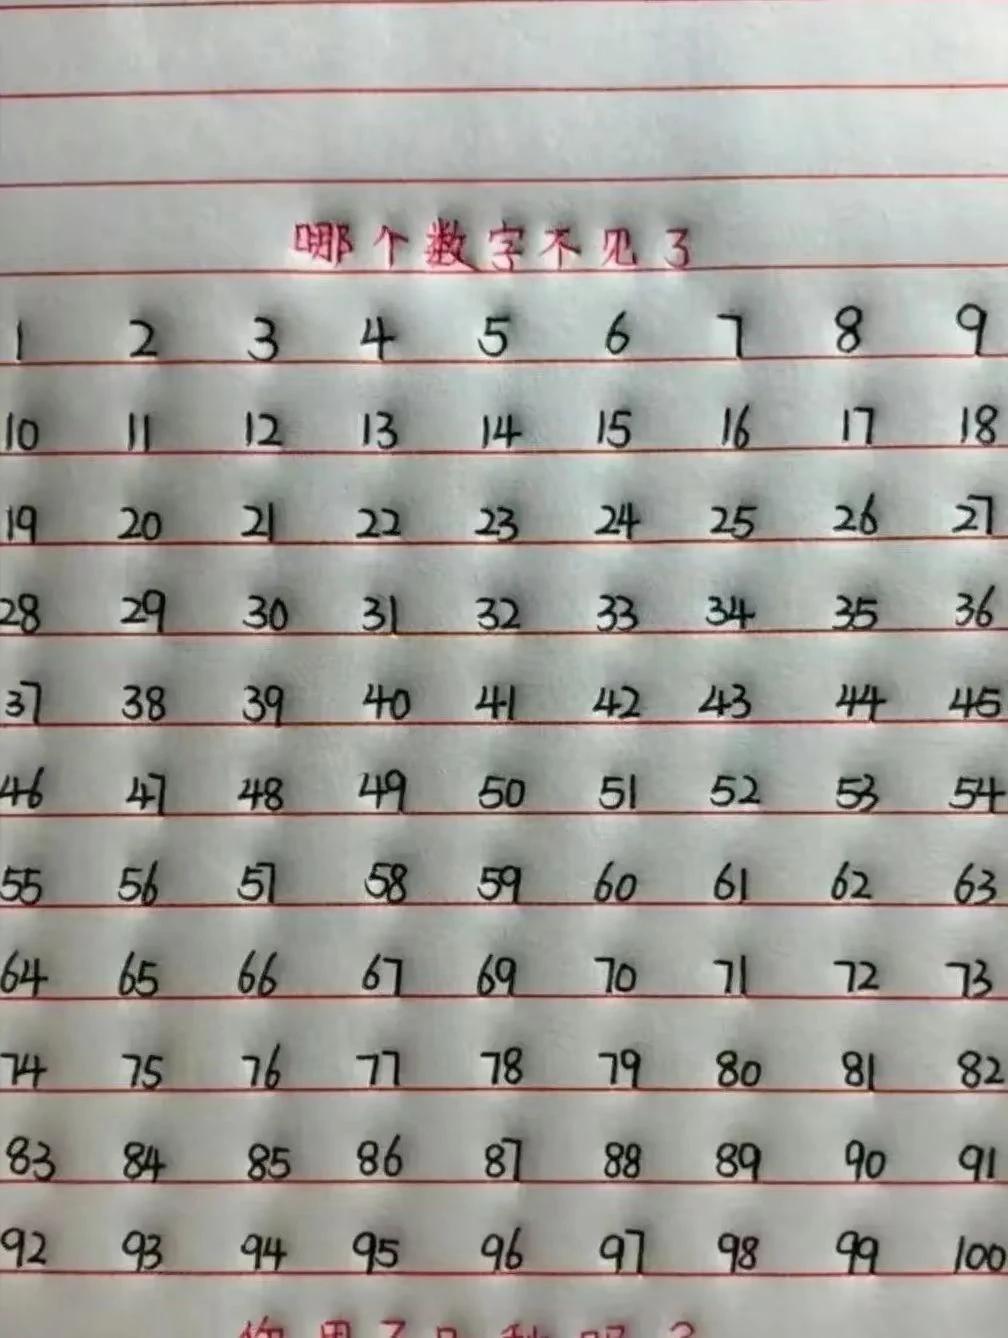 哪个数字不见了
1 2 3 4 5 6 7 8 9
10 11 12 13 14 15 16 17 18
19 20 21 22 23 24 25 26 27
28 29 30 31 32 33 34 35 36
37 38 39 40 41 42 43 44 45
46 47 48 49 50 51 52 53 54
55 56 57 58 59 60 61 62 63
64 65 66 67 69 70 71 72 73
74 75 76 77 78 79 80 81 82
83 84 85 86 87 88 89 90 91
92 93 94 95 96 97 98 99 100